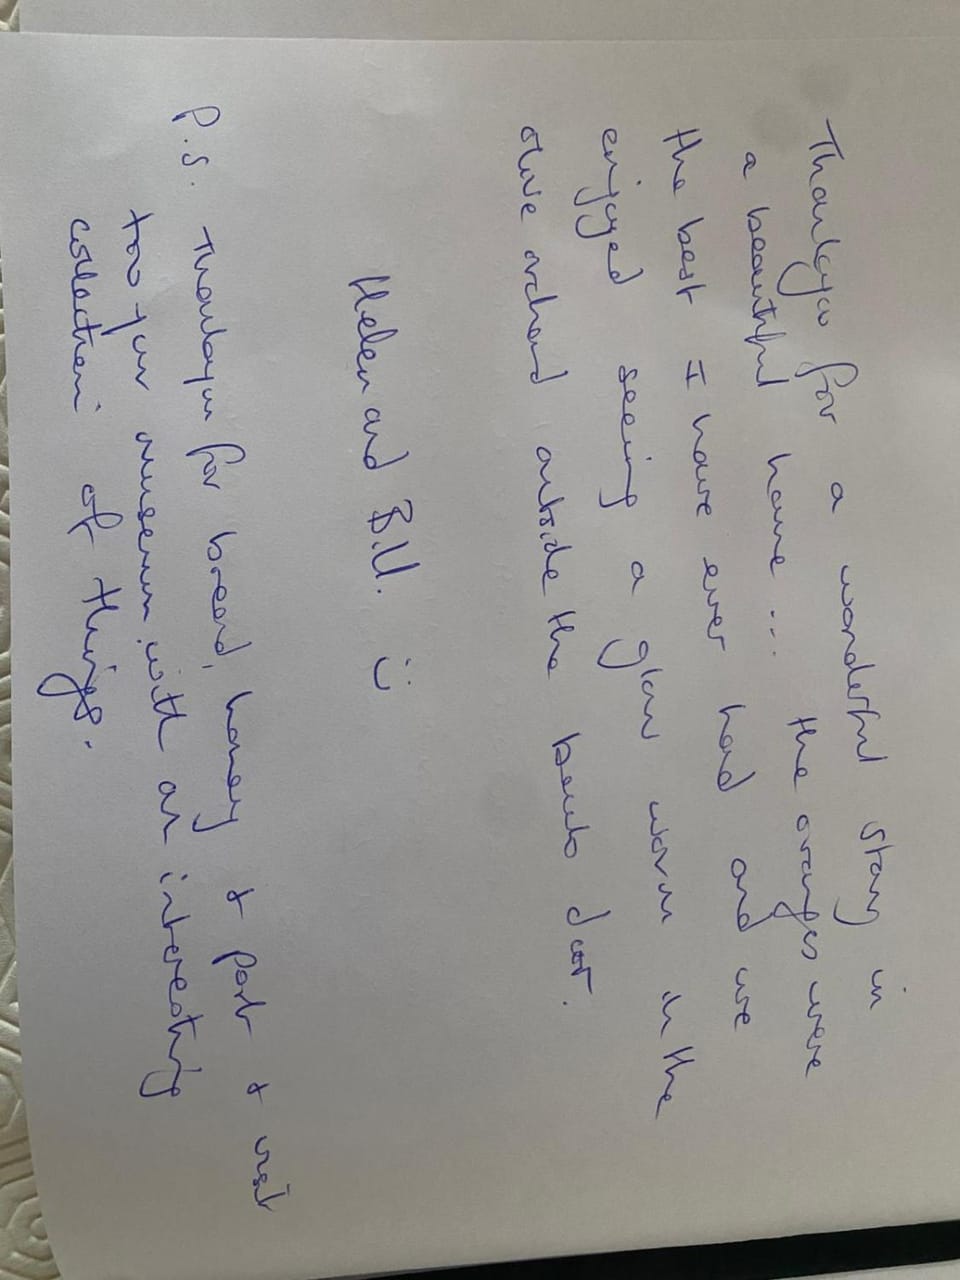 Thankyou for a wonderful stay in
a beautiful home... the oranges were
the best I have ever had and we
enjoyed seeing a glow worm in the
olive orchard outside the back door.
Helen and Bill. :)
P.S. Thankyou for bread, honey & port & visit
too your museum with an interesting
collection of things.